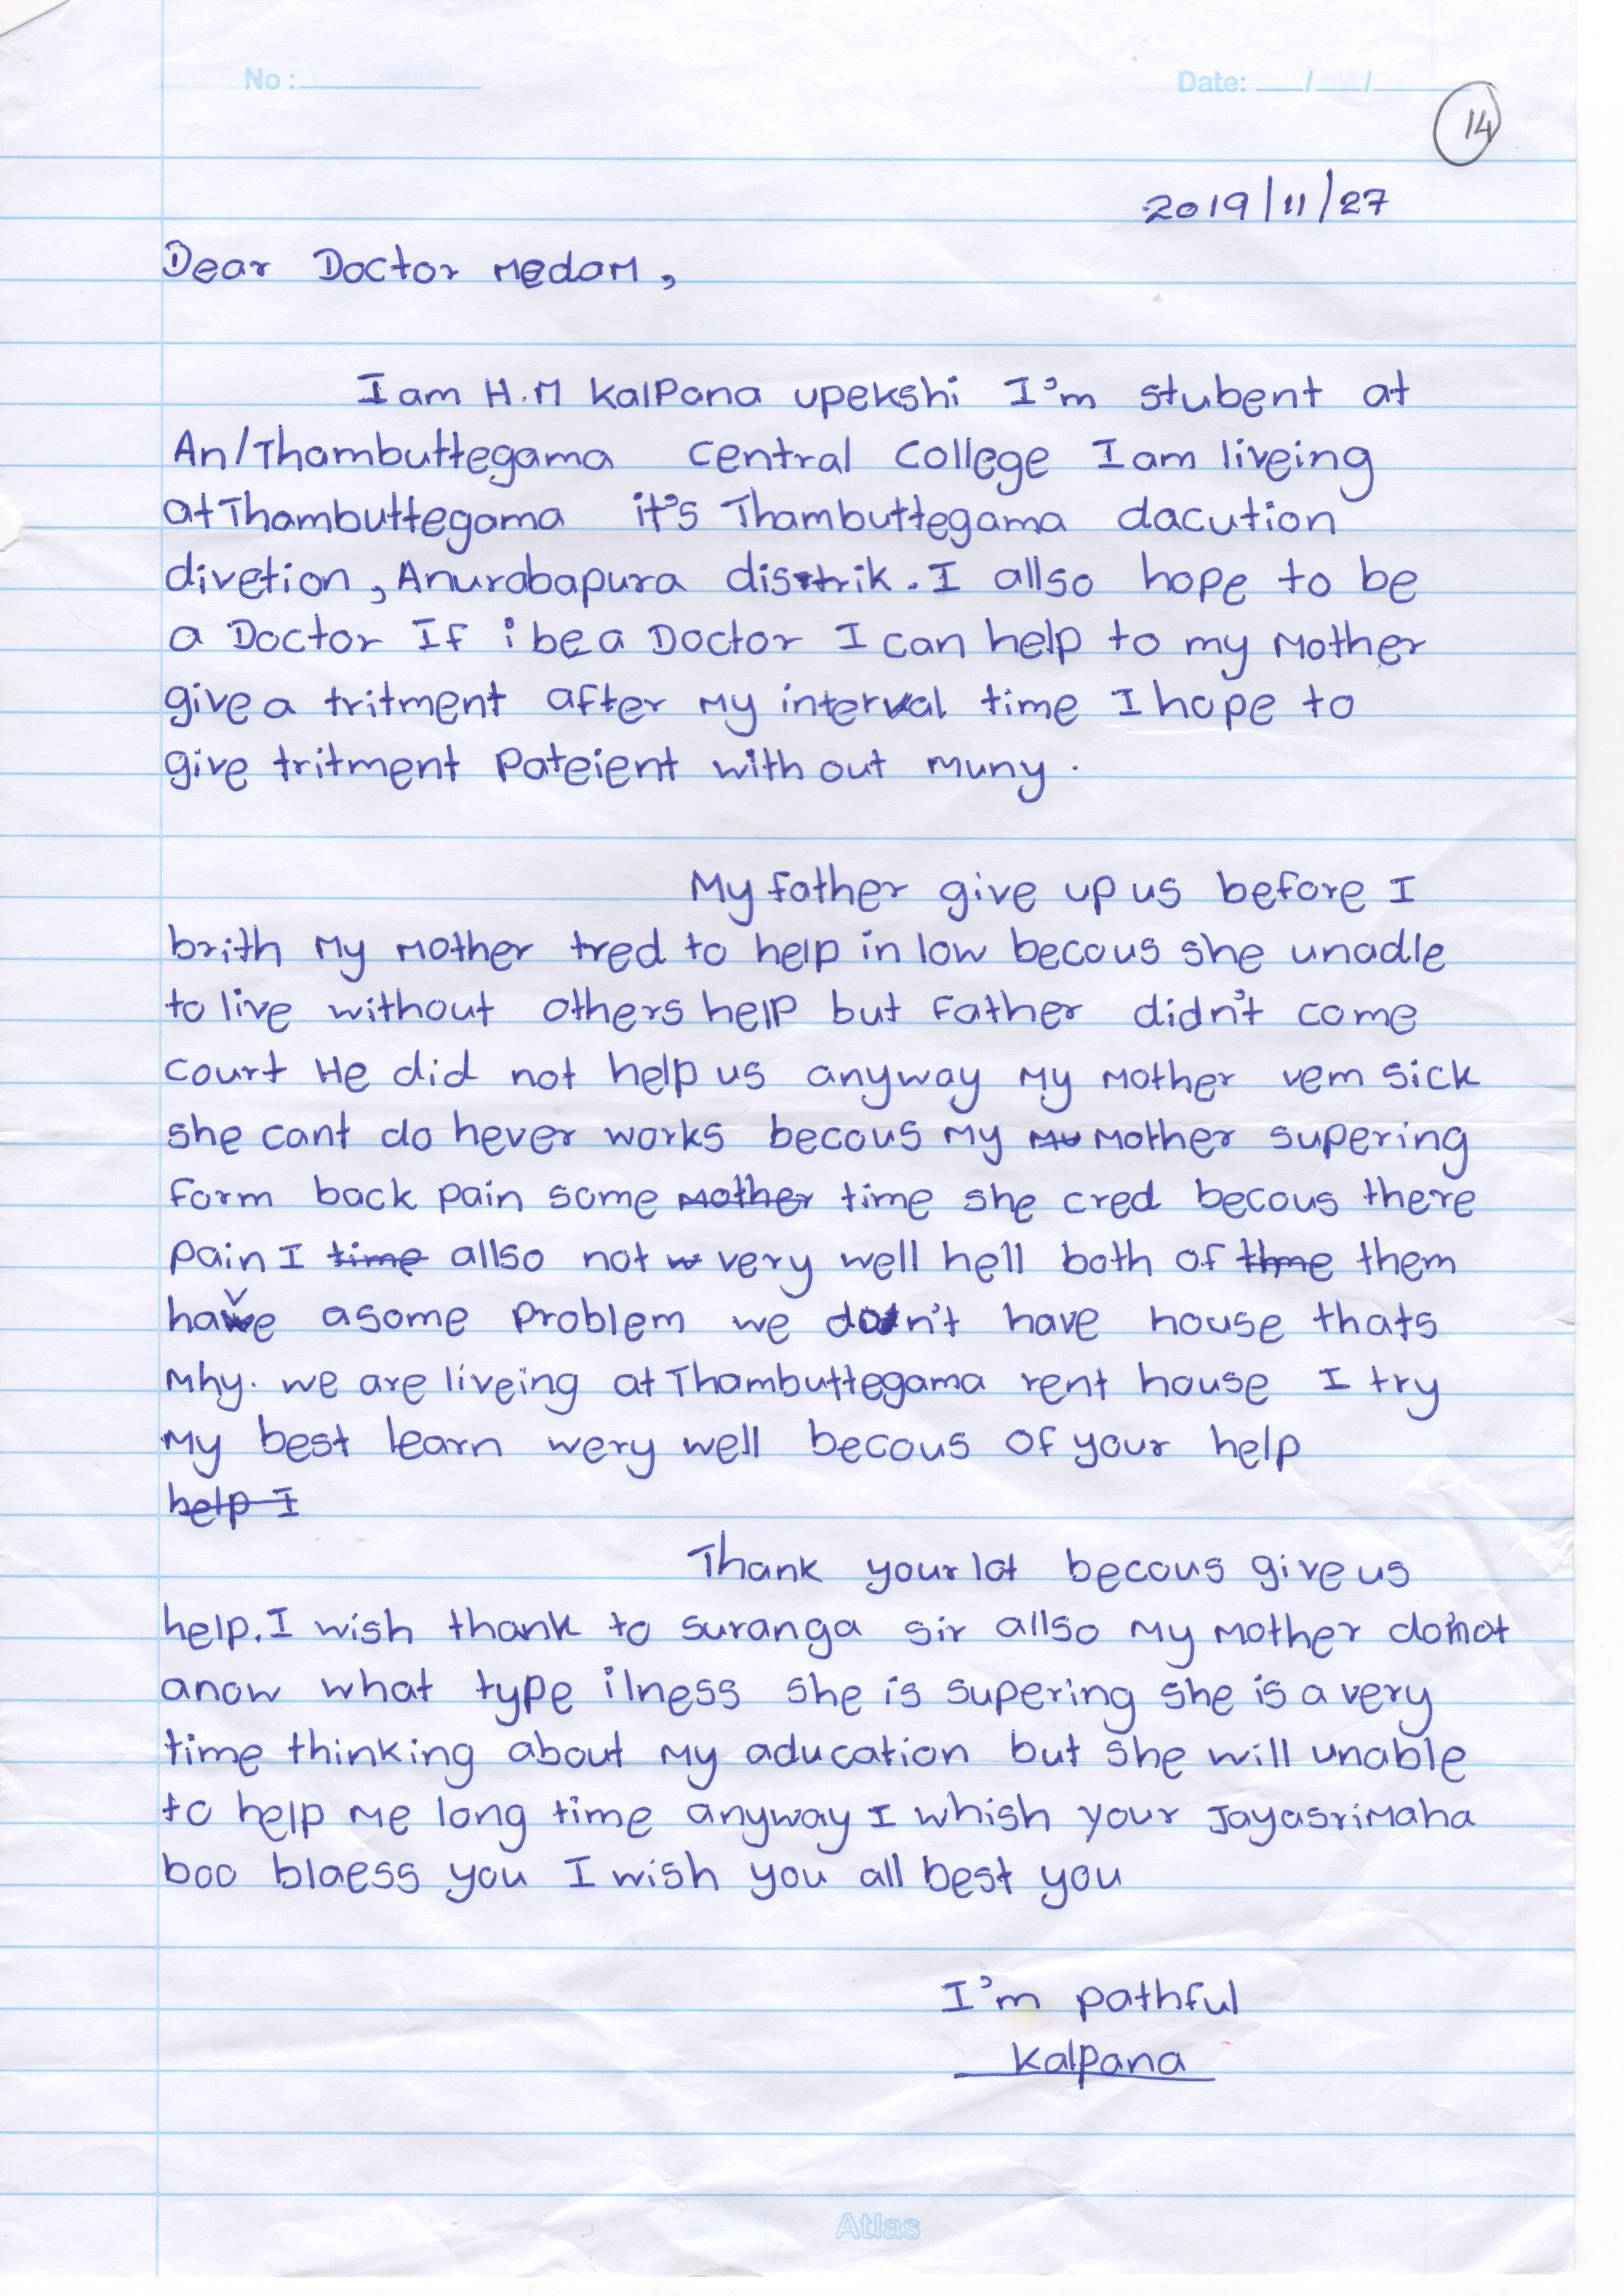 No :
Date: / /
14
2019/11/27
Dear Doctor medam,
I am H.M Kalpana upekshi I'm stubent at
An/Thambuttegama central college I am liveing
at Thambuttegama it's Thambuttegama dacution
divetion, Anurabapura distrik. I allso hope to be
a Doctor If i be a Doctor I can help to my mother
give a tritment after my interval time I hope to
give tritment pateient with out muny.
My father give up us before I
brith my mother tred to help in low becous she unadle
to live without others help but father didn't come
court He did not help us anyway my mother vem sick
she cant do hever works becous my mu mother supering
form back pain some mother time she cred becous there
pain I time allso not w very well hell both of thme them
have asome problem we don't have house thats
mhy. we are liveing at Thambuttegama rent house I try
my best learn wery well becous of your help
help I
Thank your lot becous give us
help. I wish thank to suranga sir allso my mother do not
anow what type ilness she is supering she is a very
time thinking about my aducation but she will unable
to help me long time anyway I whish your Jayasrimaha
boo blaess you I wish you all best you
I'm pathful
Kalpana
Atlas